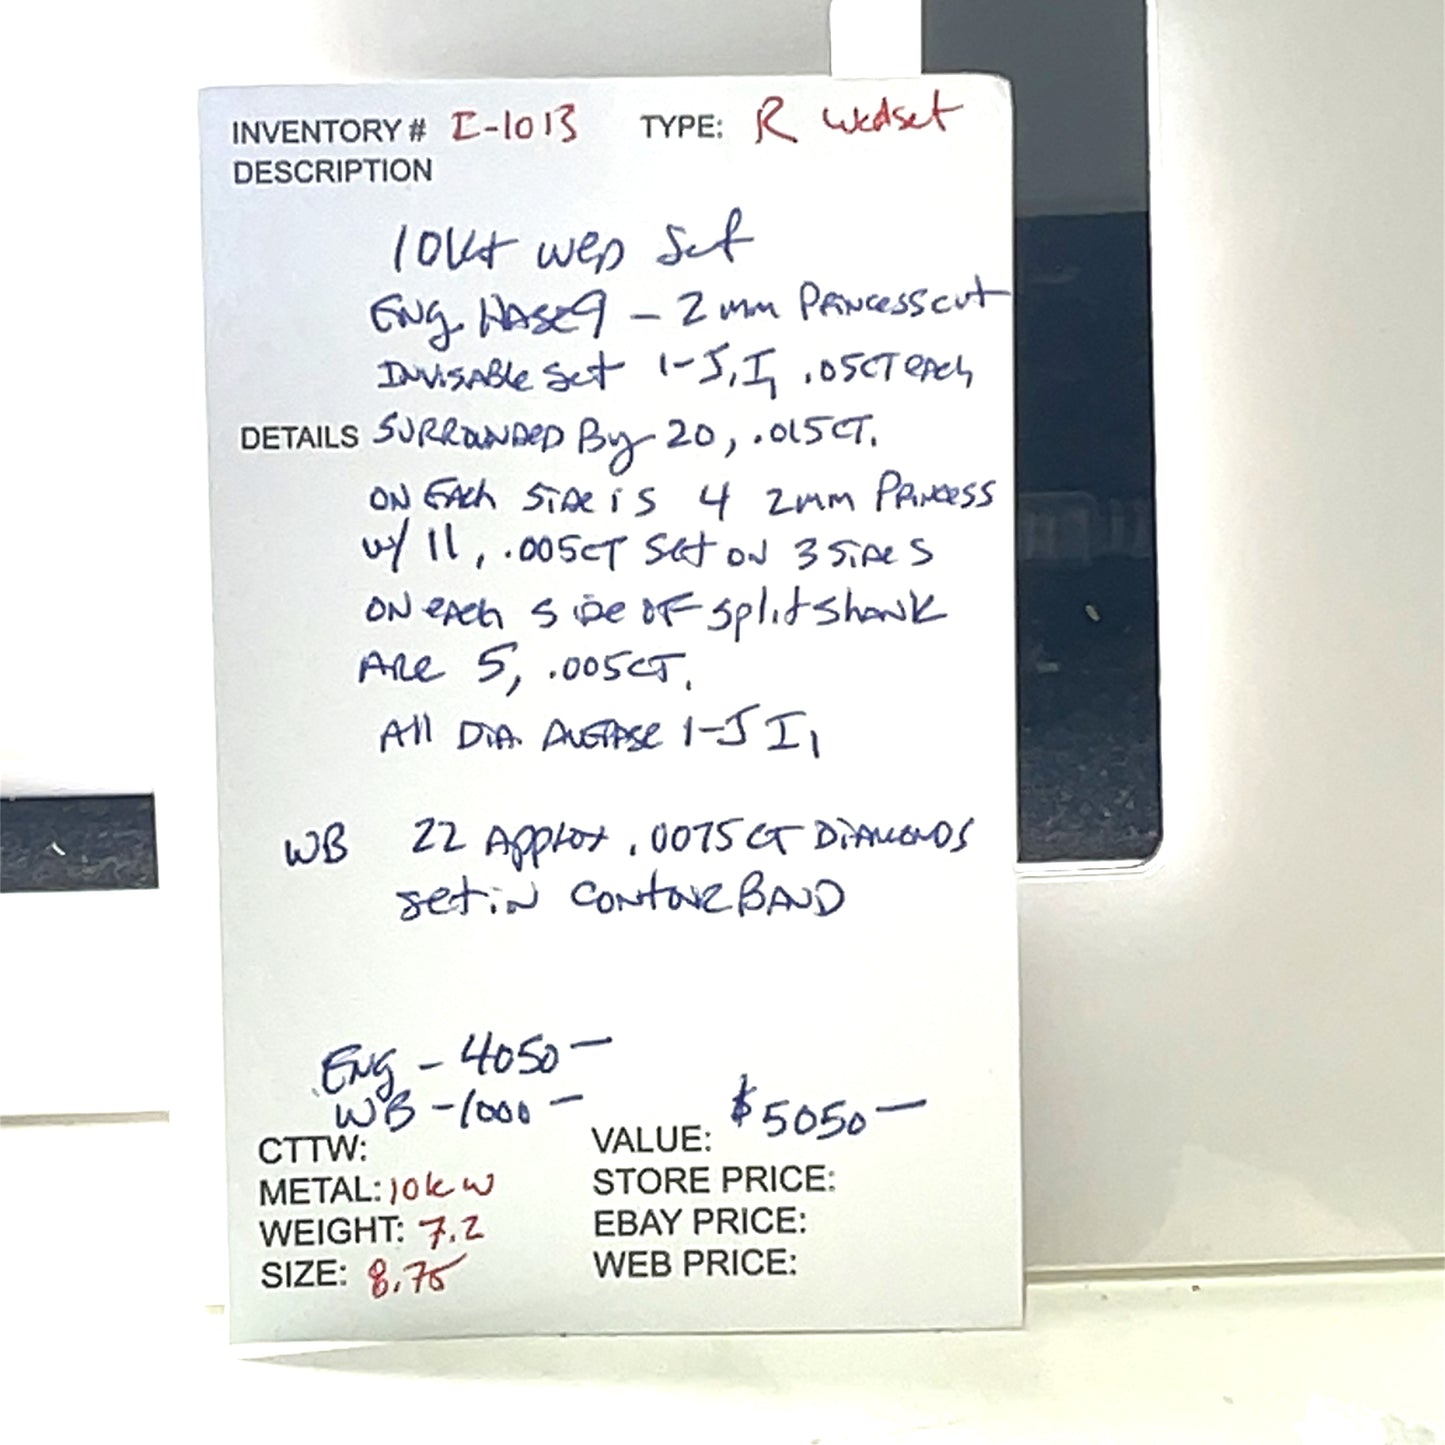 INVENTORY # I-1013 TYPE: R wedset
DESCRIPTION
10kt WED Set
ENG. HASE9 - 2mm PRINCESS cut
INVISABLE Set 1-J, I1 .05CT EACH
DETAILS SURROUNDED By 20, .015CT.
ON EACH SIDE IS 4 2mm PRINCESS
w/ 11, .005CT Set ON 3 SIDES
ON EACH SIDE OF split shank
ARE 5, .005CT.
All DIA. AVERAGE 1-J I1
WB 22 Approx .0075CT DIAMONDS
set in CONTOUR BAND
ENG - 4050 —
WB - 1000 — $5050 —
CTTW: VALUE:
METAL: 10kw STORE PRICE:
WEIGHT: 7.2 EBAY PRICE:
SIZE: 8.75 WEB PRICE: